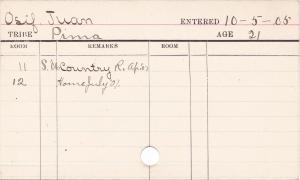 Osif, Juan ENTERED 10-5-05
TRIBE Pima AGE 21
ROOM REMARKS ROOM
11 Country R.
12 Home July